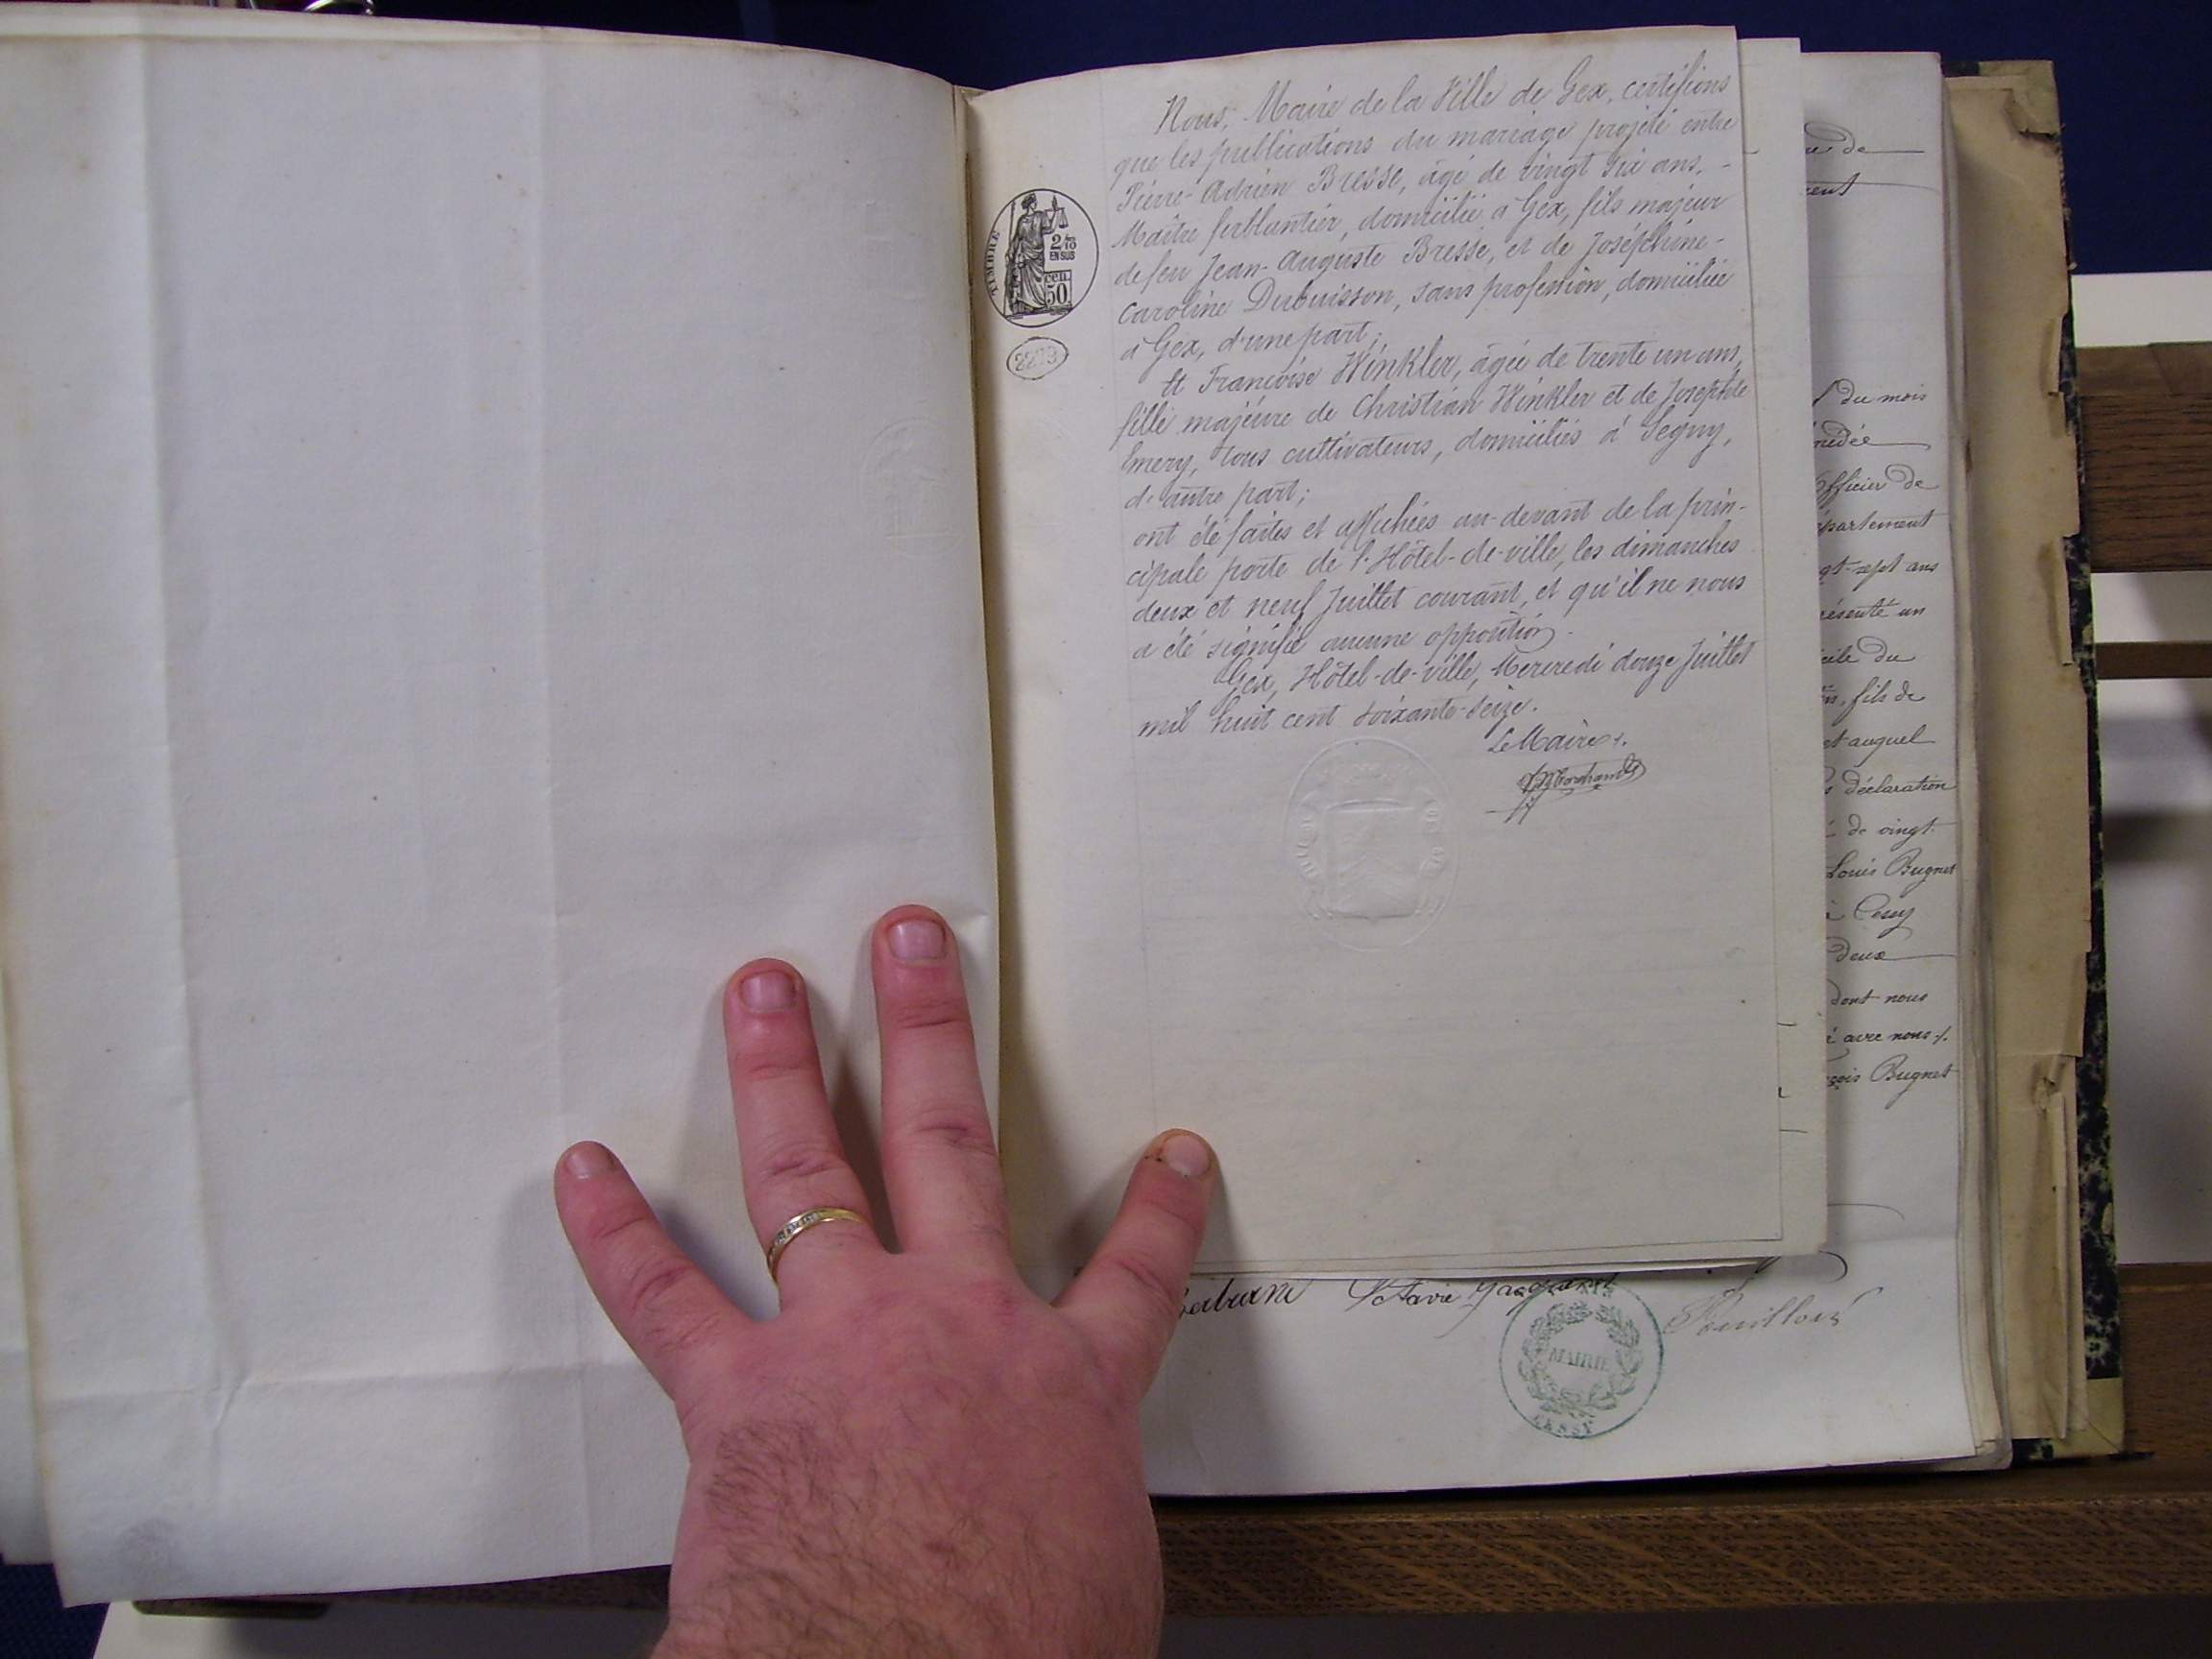 Nous, Maire de la Ville de Gex, certifions
que les publications du mariage projeté entre
Pierre-Adrien Bresse, âgé de vingt six ans, -
Maître ferblantier, domicilié à Gex, fils majeur
de feu Jean-Auguste Bresse, et de Joséphine-
Caroline Dubuisson, sans profession, domiciliée
à Gex, d'une part;
Et Françoise Winkler, âgée de trente un ans,
fille majeure de Christian Winkler et de Josephte
Emery, tous cultivateurs, domiciliés à Segny,
d'autre part;
ont été faites et affichées au-devant de la prin-
cipale porte de l'Hôtel-de-ville, les dimanches
deux et neuf Juillet courant, et qu'il ne nous
a été signifié aucune opposition.
Gex, Hôtel-de-ville, Mercredi douze Juillet
mil huit cent soixante-seize.
Le Maire.
TIMBRE
2/10
EN SUS
50
cen.
2279
de
du mois
Officier de
partement
gt-sept ans
résenté un
cile du
fils de
et auquel
déclaration
de vingt-
Louis Bugnet
à Cessy
deux
dont nous
avec nous
Bugnet
MAIRIE